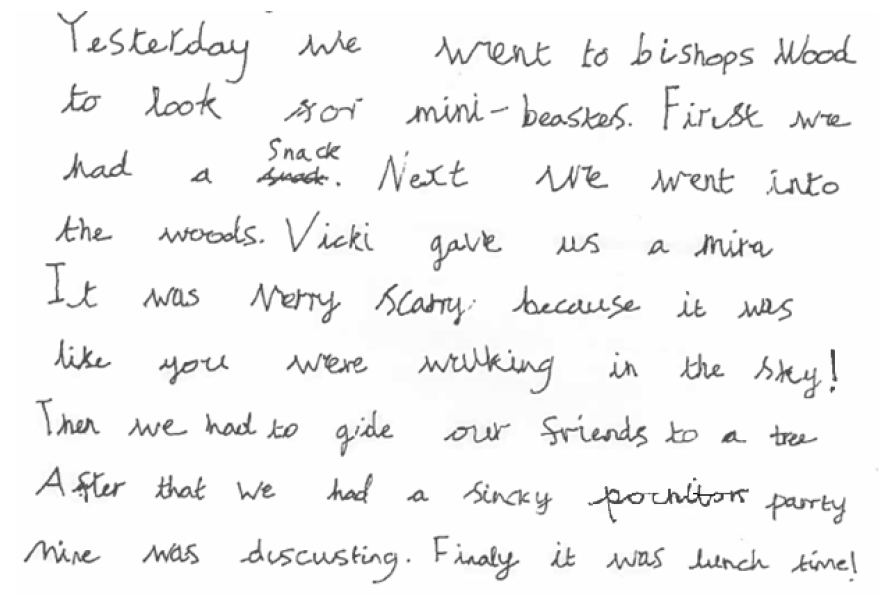 Yesterday we went to bishops Wood
to look for mini-beastes. First we
had a snack. Next we went into
the woods. Vicki gave us a mira
It was verry scarry because it was
like you were walking in the sky!
Then we had to gide our friends to a tree
After that we had a sincky parrty
Mine was discusting. Finaly it was lunch time!